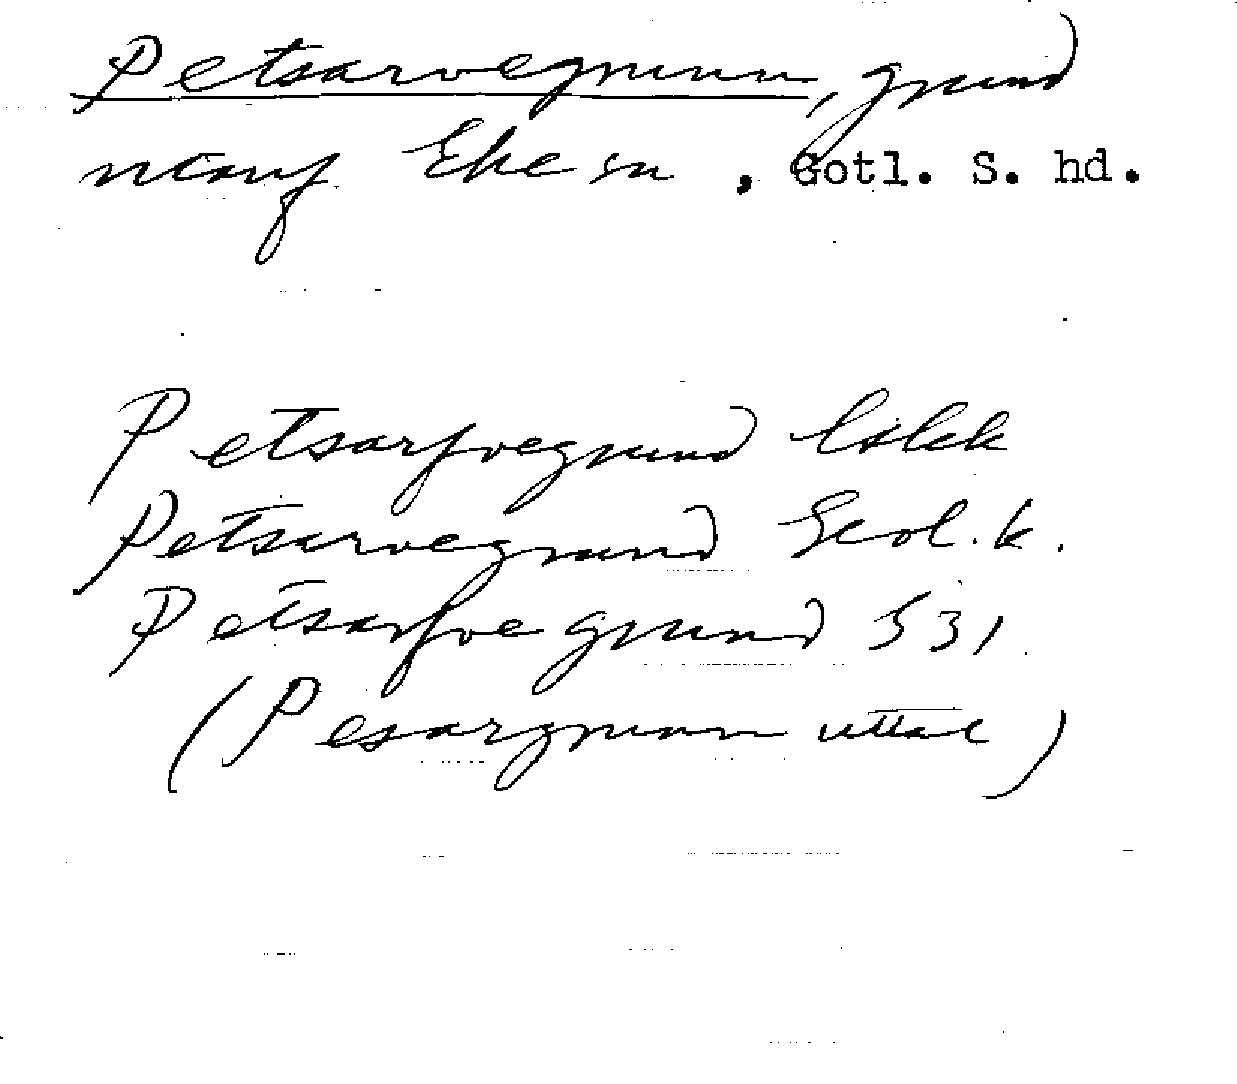 Petsarvegrunn, grund
utanf Eke sn, Gotl. S. hd.
Petsarfvegrund
Petsarvegrund Geol. k.
Petsarfve grund 531
(Pesargrunn uttal)